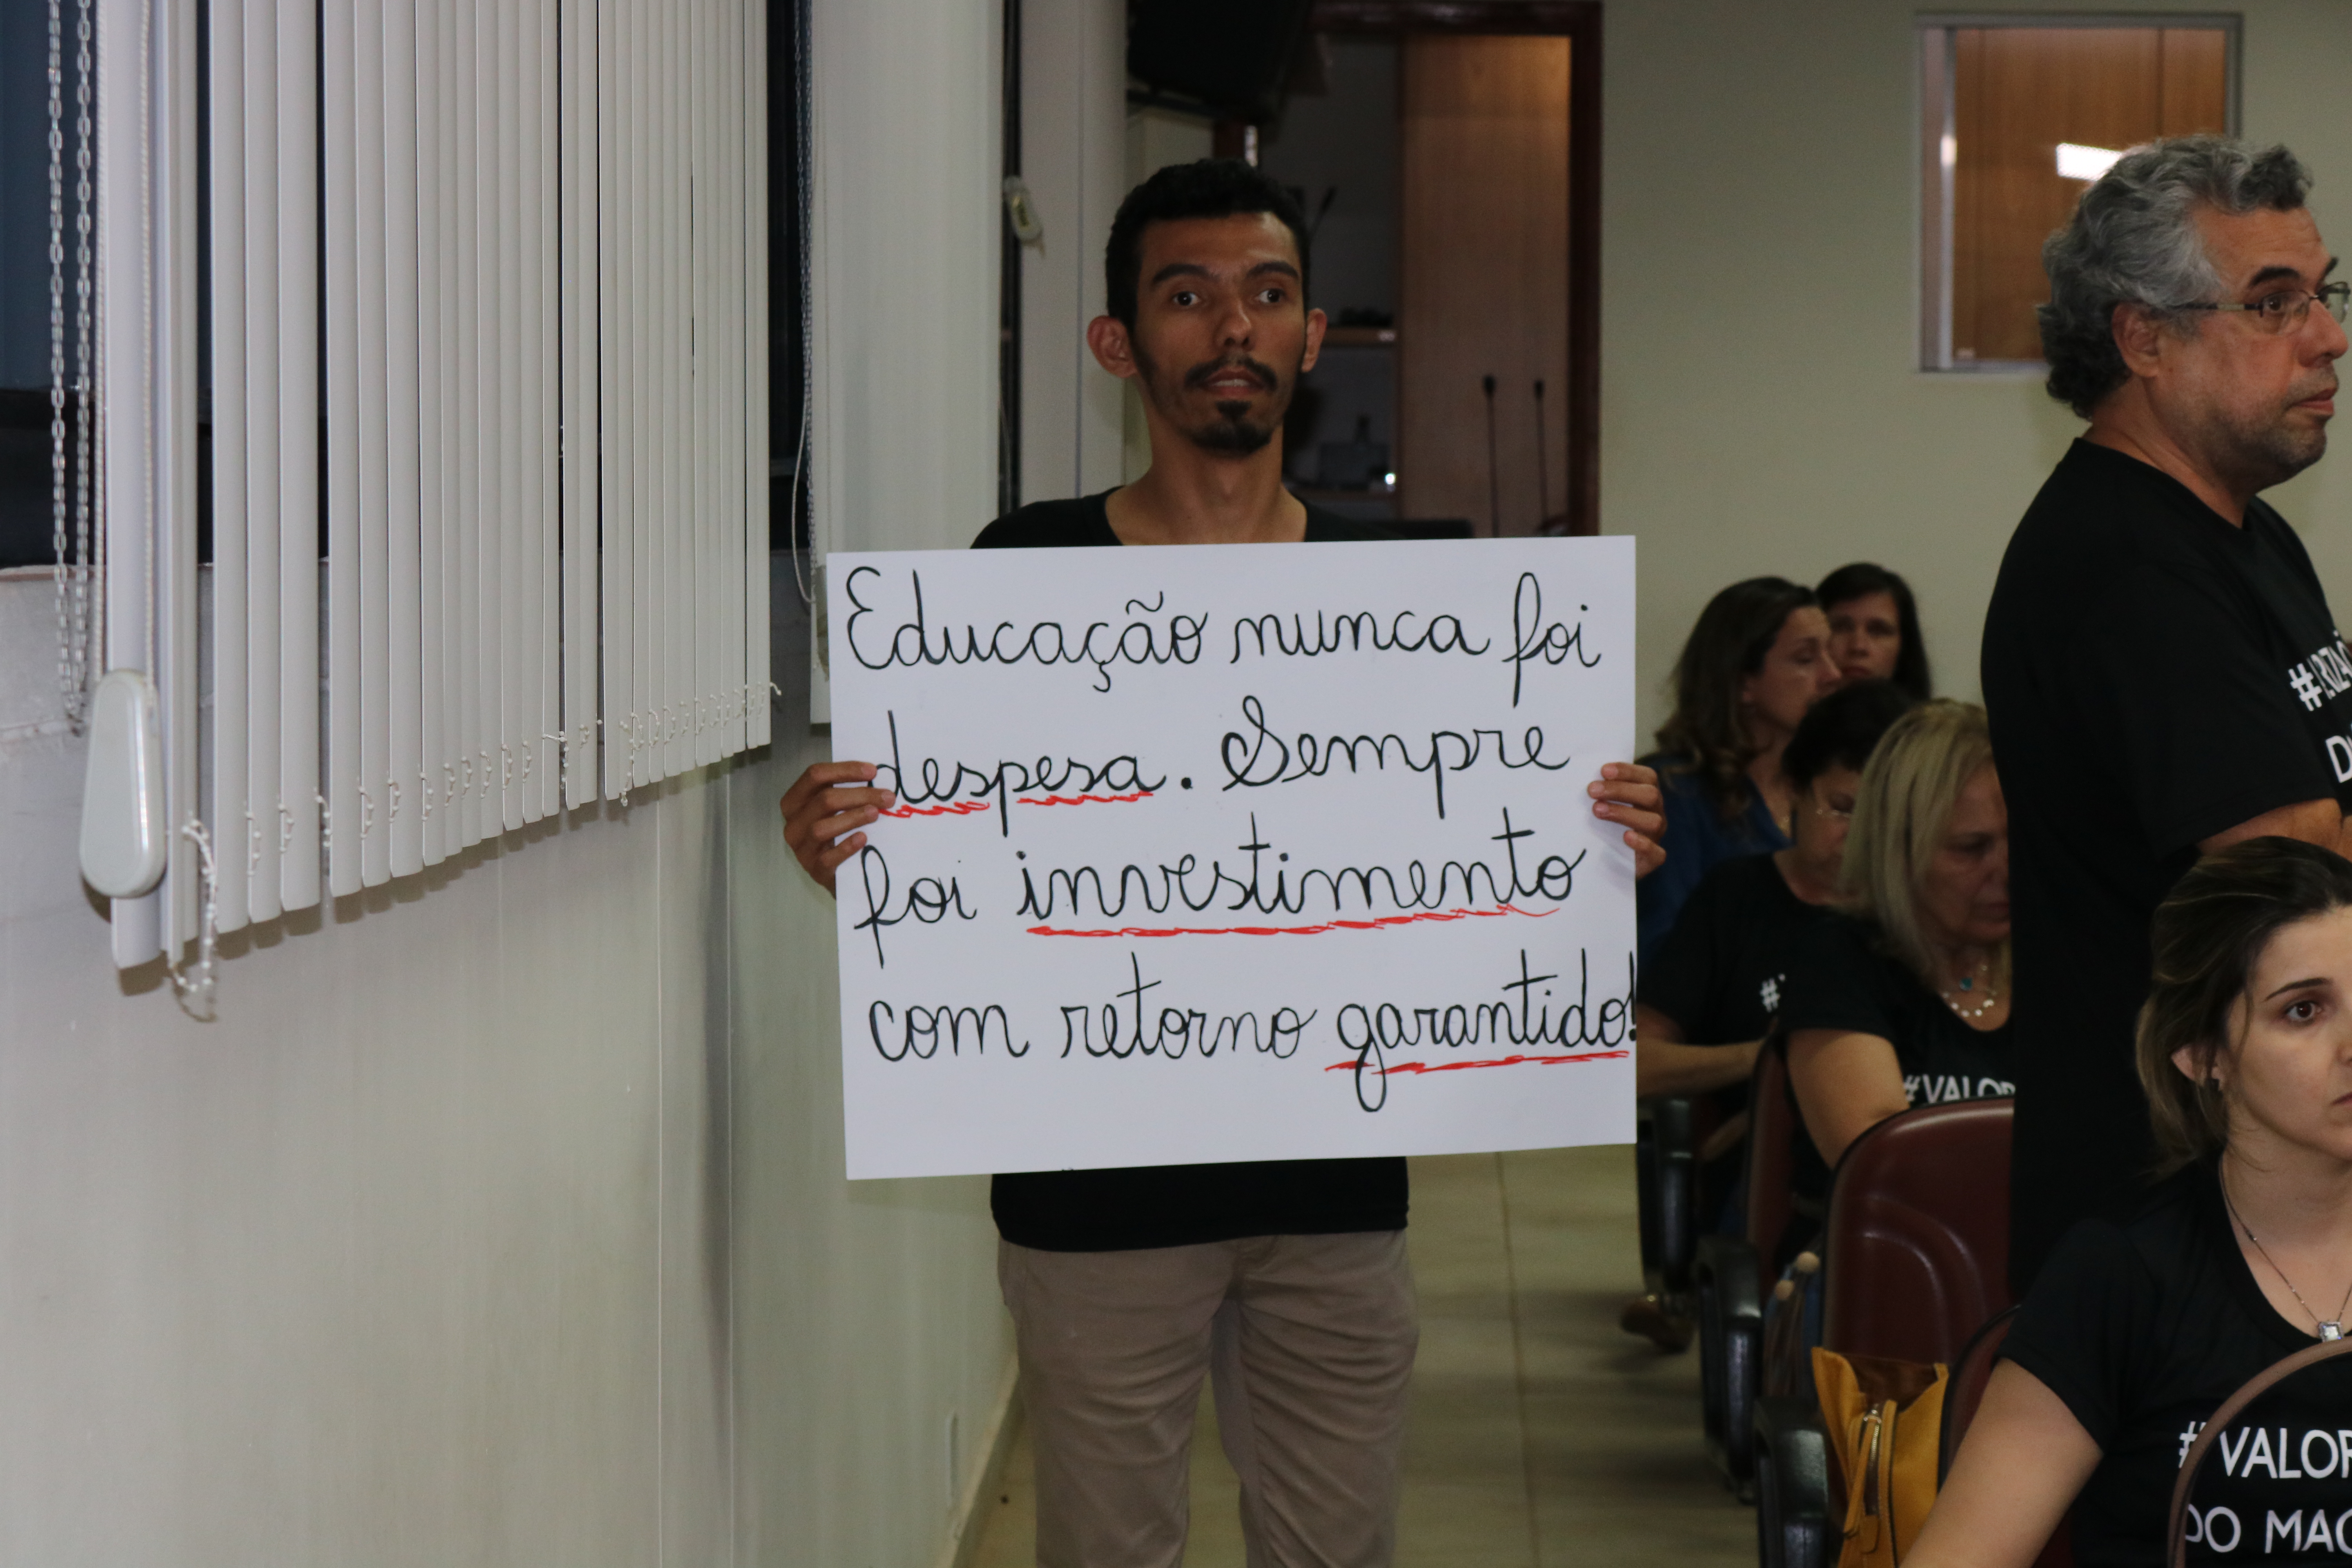 Educação nunca foi
despesa. Sempre
foi investimento
com retorno garantido!
#VALOR
#VALOR
DO MAG